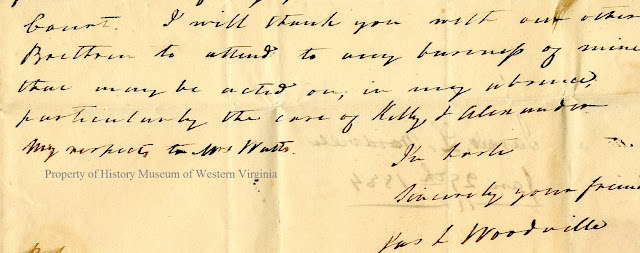 Court. I will thank you with our other
Brethren to attend to any business of mine
that may be acted on, in my absence,
particularly the case of Kelly & Alexander
My respects to Mrs Watts.
In haste
Property of History Museum of Western Virginia
Sincerely your friend
Jas L Woodville